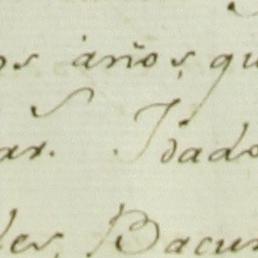 os años, qu
ar. Idado
les, Bacun